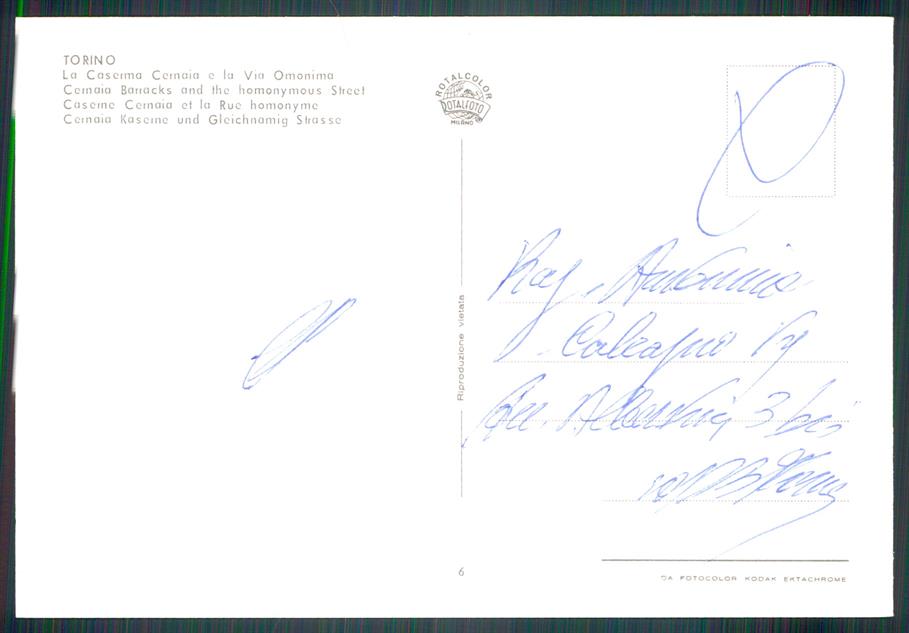 TORINO
La Caserma Cernaia e la Via Omonima
Cernaia Barracks and the homonymous Street
Caserne Cernaia et la Rue homonyme
Cernaia Kaserne und Gleichnamig Strasse
ROTALCOLOR
ROTALFOTO
MILANO
Riproduzione vietata
Rag. Antonino
3 bis
6
DA FOTOCOLOR KODAK EKTACHROME